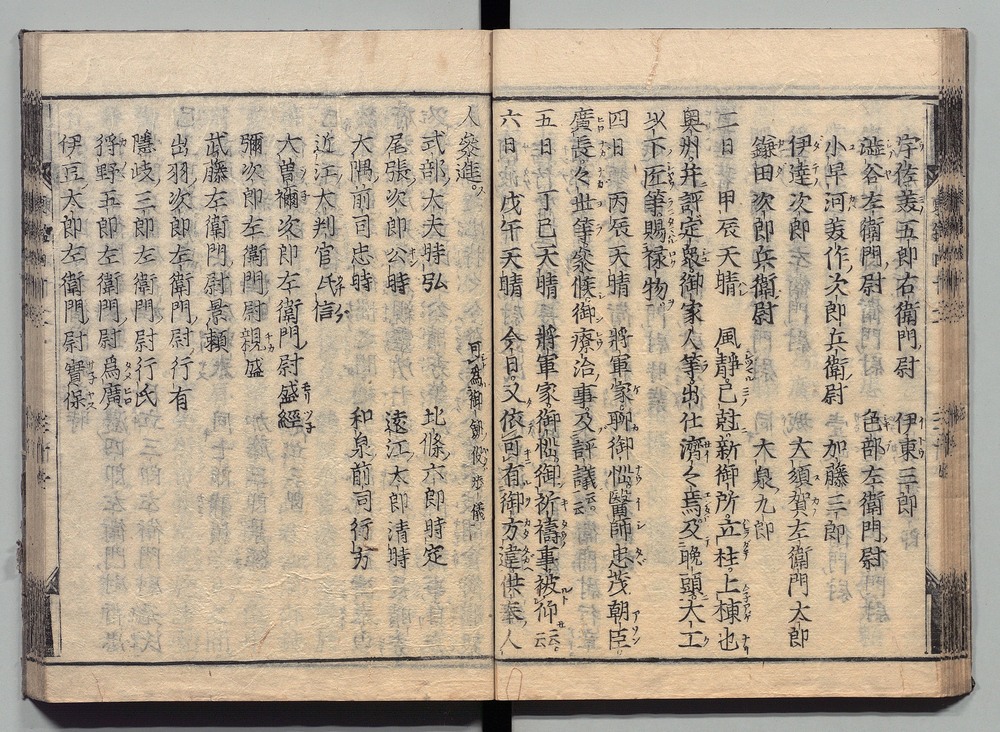 宇佐美五郎右衛門尉　伊東三郎
澁谷左衛門尉　色部左衛門尉
小早河美作次郎兵衛尉　加藤三郎
伊達次郎　大須賀左衛門太郎
鎌田次郎兵衛尉　大泉九郎
二日　甲辰天晴　風靜已尅新御所立柱上棟也
奥州并評定衆御家人等出仕濟々焉及晩頭大工
以下匠等賜祿物
四日　丙辰天晴　將軍家聊御惱醫師忠茂朝臣
廣長々世等參候御療治事及評議云云
五日　丁巳天晴　將軍家御惱御祈禱事被仰云云
六日　戊午天晴　今日又依可有御方違供奉人
人參進
式部大夫時弘　北條六郎時定
尾張次郎公時　遠江太郎清時
大隅前司忠時　和泉前司行方
近江大判官氏信
大曽禰次郎左衛門尉盛經
彌次郎左衛門尉親盛
武藤左衛門尉景頼
出羽次郎左衛門尉行有
隱岐三郎左衛門尉行氏
狩野五郎左衛門尉爲廣
伊豆太郎左衛門尉實保